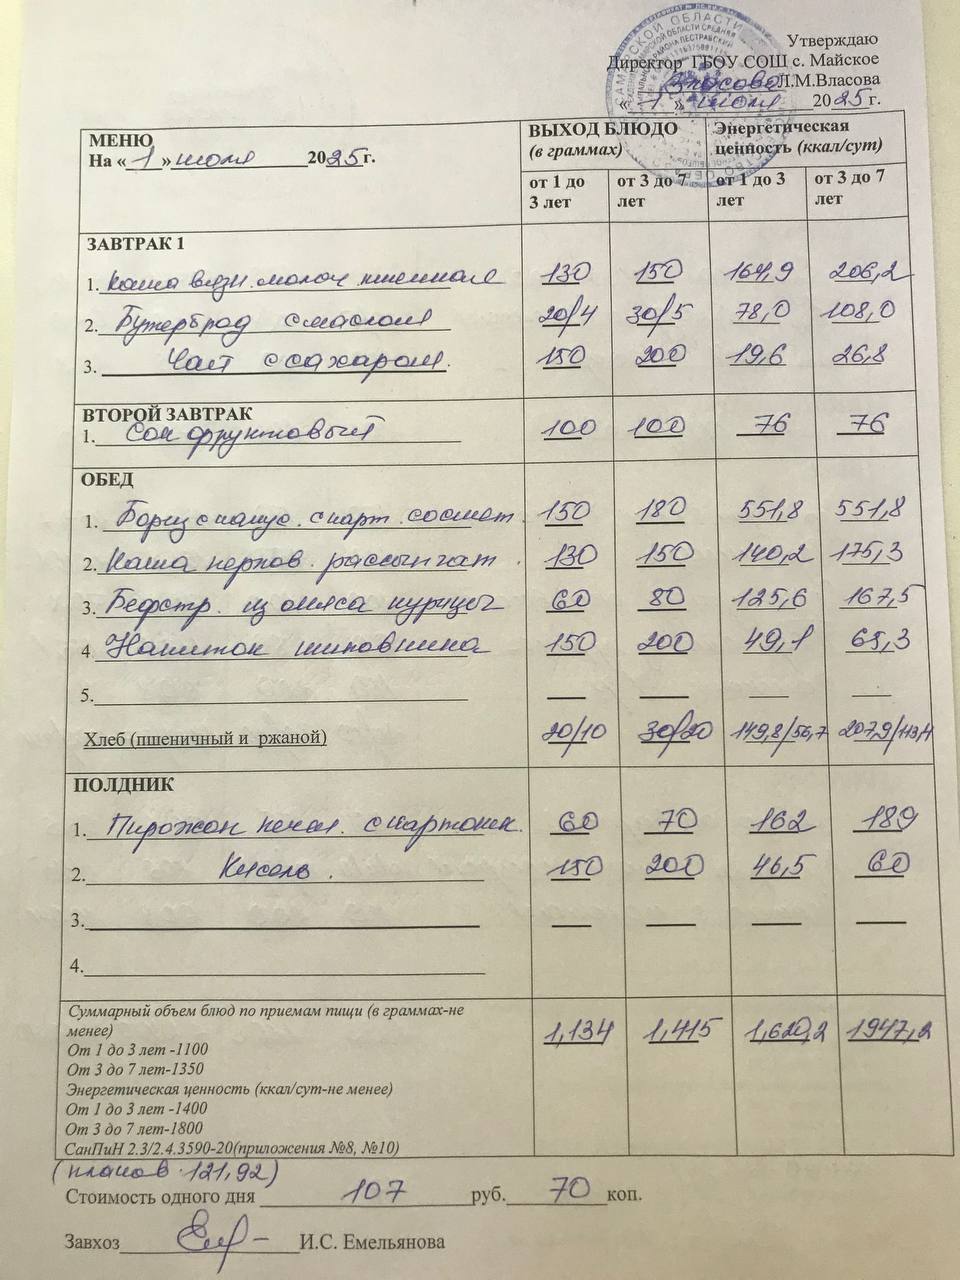 Утверждаю
Директор ГБОУ СОШ с. Майское
Власова Л.М.Власова
«1» июля 2025 г.
МЕНЮ
На «1» июля 2025г.
ВЫХОД БЛЮДО
(в граммах)
Энергетическая
ценность (ккал/сут)
от 1 до 3 лет
от 3 до 7 лет
от 1 до 3 лет
от 3 до 7 лет
ЗАВТРАК 1
1. Каша вязк. молоч пшенная 130 150 164,9 206,2
2. Бутерброд с маслом 20/4 30/5 78,0 108,0
3. Чай с сахаром. 150 200 19,6 26,8
ВТОРОЙ ЗАВТРАК
1. Сок фруктовый 100 100 76 76
ОБЕД
1. Борщ с капус. с карт. со смет. 150 180 551,8 551,8
2. Каша перлов. рассыпчат. 130 150 140,2 175,3
3. Бефстр. из мяса курицы 60 80 125,6 167,5
4 Напиток шиповника 150 200 49,1 65,3
5. — — — —
Хлеб (пшеничный и ржаной) 20/10 30/20 149,8/56,7 207,9/113,4
ПОЛДНИК
1. Пирожок печён. с картошк. 60 70 162 189
2. Кисель. 150 200 46,5 60
3. — — — —
4.
Суммарный объем блюд по приемам пищи (в граммах-не
менее) 1,134 1,415 1,620,2 1947,2
От 1 до 3 лет -1100
От 3 до 7 лет-1350
Энергетическая ценность (ккал/сут-не менее)
От 1 до 3 лет -1400
От 3 до 7 лет-1800
СанПиН 2.3/2.4.3590-20(приложения №8, №10)
(планов. 121,92)
Стоимость одного дня 107 руб. 70 коп.
Завхоз И.С. Емельянова